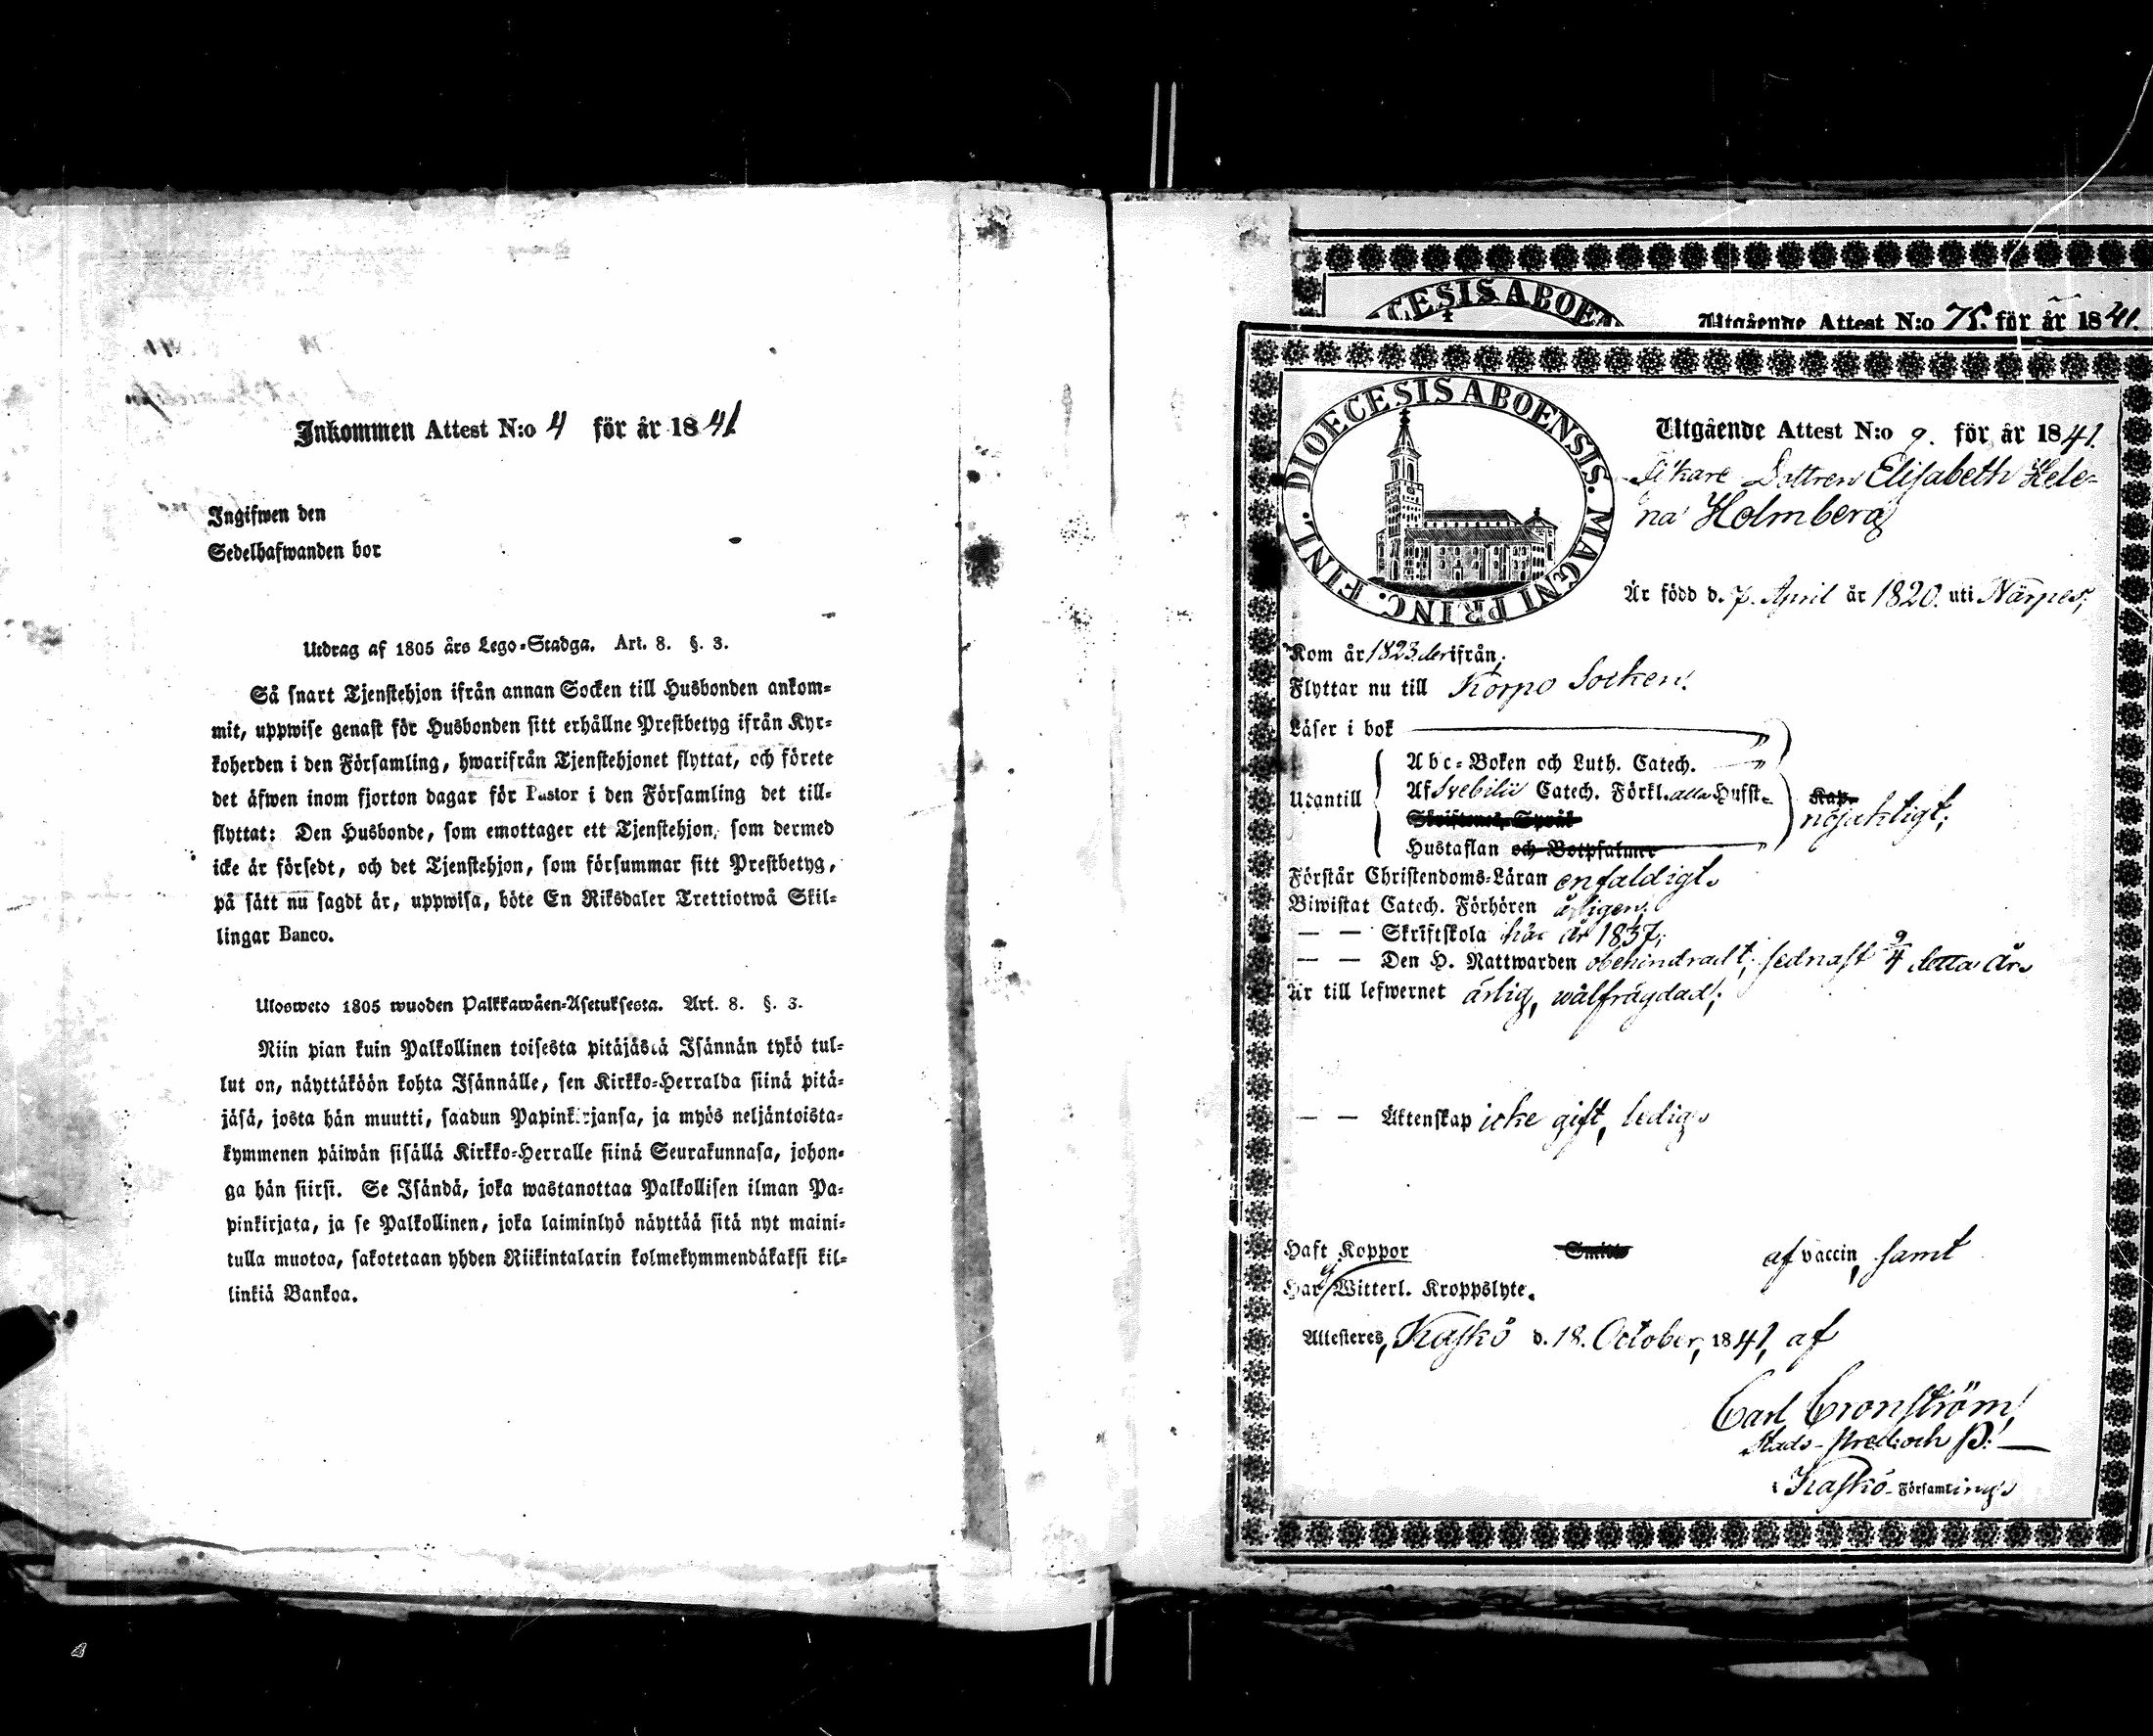 Inkommen Attest N:o 4 för år 1841
Ingifwen den
Sedelhafwanden bor
Utdrag af 1805 års Lego-Stadga. Art. 8. §. 3.
Så snart Tjenstehjon ifrån annan Socken till Husbonden ankom-
mit, uppwise genast för Husbonden sitt erhållne Prestbetyg ifrån Kyr-
koherden i den Församling, hwarifrån Tjenstehjonet flyttat, och förete
det äfwen inom fjorton dagar för Pastor i den Församling det till-
flyttat: Den Husbonde, som emottager ett Tjenstehjon, som dermed
icke är försedt, och det Tjenstehjon, som försummar sitt Prestbetyg,
på sätt nu sagdt är, uppwisa, böte En Riksdaler Trettiotwå Skil-
lingar Banco.
Ulosweto 1805 wuoden Palkkawäen-Asetuksesta. Art. 8. §. 3.
Niin pian kuin Palkollinen toisesta pitäjästä Isännän tykö tul-
lut on, näyttäköön kohta Isännälle, sen Kirkko-Herralda siinä pitä-
jäsä, josta hän muutti, saadun Papinkirjansa, ja myös neljäntoista-
kymmenen päiwän sisällä Kirkko-Herralle siinä Seurakunnasa, johon-
ga hän siirsi. Se Isändä, joka wastanottaa Palkollisen ilman Pa-
pinkirjata, ja se Palkollinen, joka laiminlyö näyttää sitä nyt maini-
tulla muotoa, sakotetaan yhden Riikintalarin kolmekymmendäkaksi kil-
linkiä Bankoa.
Utgående Attest N:o 75. för år 1841.
DIOECESIS ABOENSIS. MAGNI PRINC. FINL.
Utgående Attest N:o 9. för år 1841.
Dottren Elisabeth Hele-
na Holmberg
Är född d. 7. April år 1820. uti Närpes;
Kom år 1823 derifrån;
Flyttar nu till Korpo Socken.
Läser i bok
Abc-Boken och Luth. Catech.
Utantill Af Svebilii Catech. Förkl. alla Hufst. Kap.
nöjaktigt;
Skriftenes Språk
Hustaflan och Botpsalmer
Förstår Christendoms-Läran enfaldigt.
Biwistat Catech. Förhören årligen;
— — Skriftskola här år 1837;
— — Den H. Nattwarden obehindradt; sednast 9/4 detta år.
Är till lefwernet ärlig, wälfrägdad;
— — Äktenskap icke gift, ledig.
Haft Koppor Smitto af vaccin, samt
Har ej Witterl. Kroppslyte.
Attesteres, Kaskö d. 18. October, 1841, af
Carl Cronström,
Stads-Pred: och P:
i Kaskö Församling.